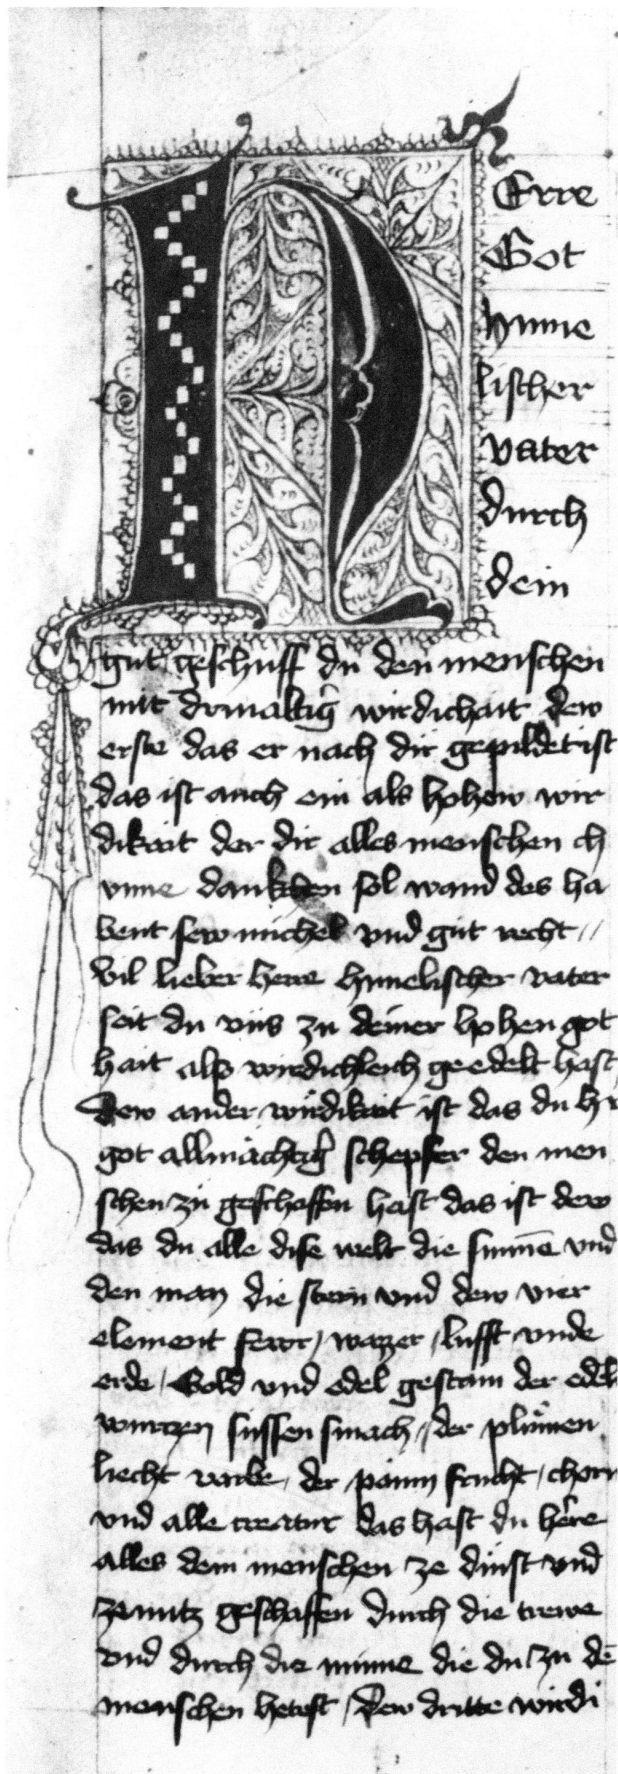 HErre
Got
hyme
lischer
vater
durch
dein
gut geschuff du den menschen
mit driualtig̃ wirdichait dew
erste das er nach dir gepildet ist
das ist auch ein als hohew wir
dikait der dir alles menschen ch
unne dankchen sol wand des ha
bent sew michel vnd gut recht //
Vil lieber herre himelischer vater
seit du vns zu deiner hohen got
hait also wirdichleich geedelt hast
Dew ander wirdikait ist das du hr̃
got allmächtig̃ schepfer den men
schen zu geschaffen hast das ist dew
das du alle dise welt die sunnē vnd
den man die stern vnd dew vier
element fewr / wazzer / lufft vnde
erde / Gold vnd edel gestain der edeln
wurczen süssen smach / der plůmen
liecht varbe / der pawm frucht / chorn
vnd alle creatur das hast du h̃re
alles dem menschen ze dinst vnd
ze nutz geschaffen durch die trewe
vnd durch die minne die du zu dē
menschen hetest / Dew dritte wirdi